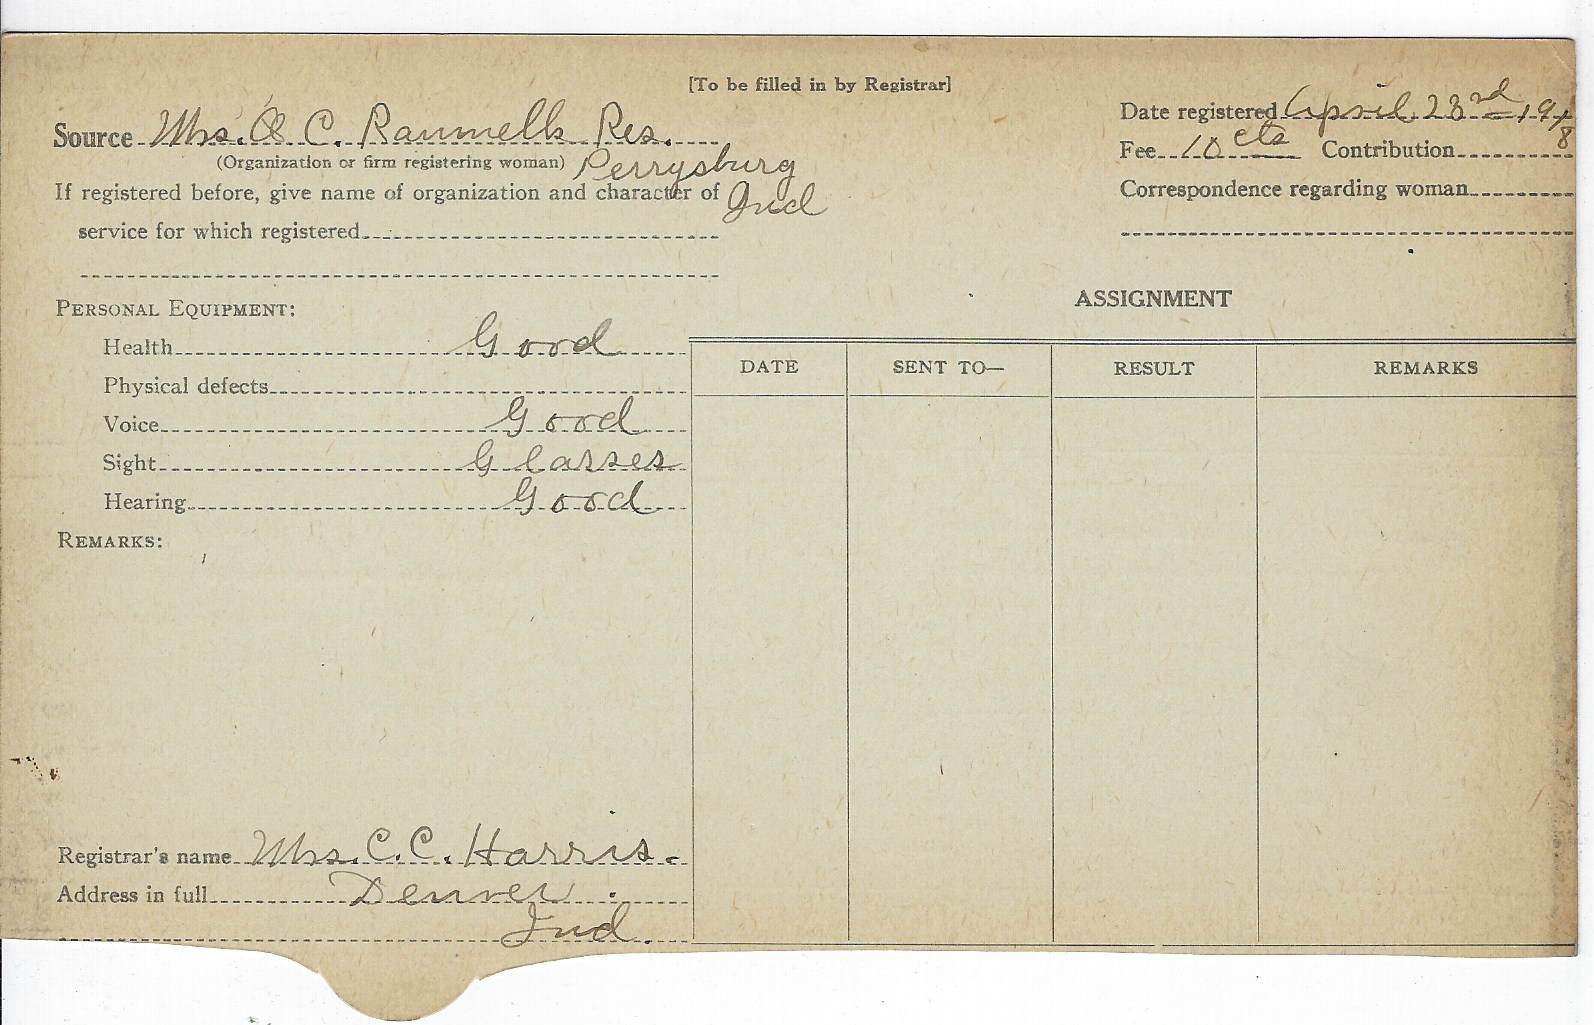 [To be filled in by Registrar]
Source Mrs. O C. Rammells Res.
(Organization or firm registering woman) Perrysburg
If registered before, give name of organization and character of Ind
service for which registered
Date registered April 23rd 1918
Fee 10 cts Contribution
Correspondence regarding woman
PERSONAL EQUIPMENT:
Health Good
Physical defects
Voice Good
Sight Glasses
Hearing Good
REMARKS:
ASSIGNMENT
DATE SENT TO— RESULT REMARKS
Registrar's name Mrs. C. C. Harris.
Address in full Denver.
Ind.